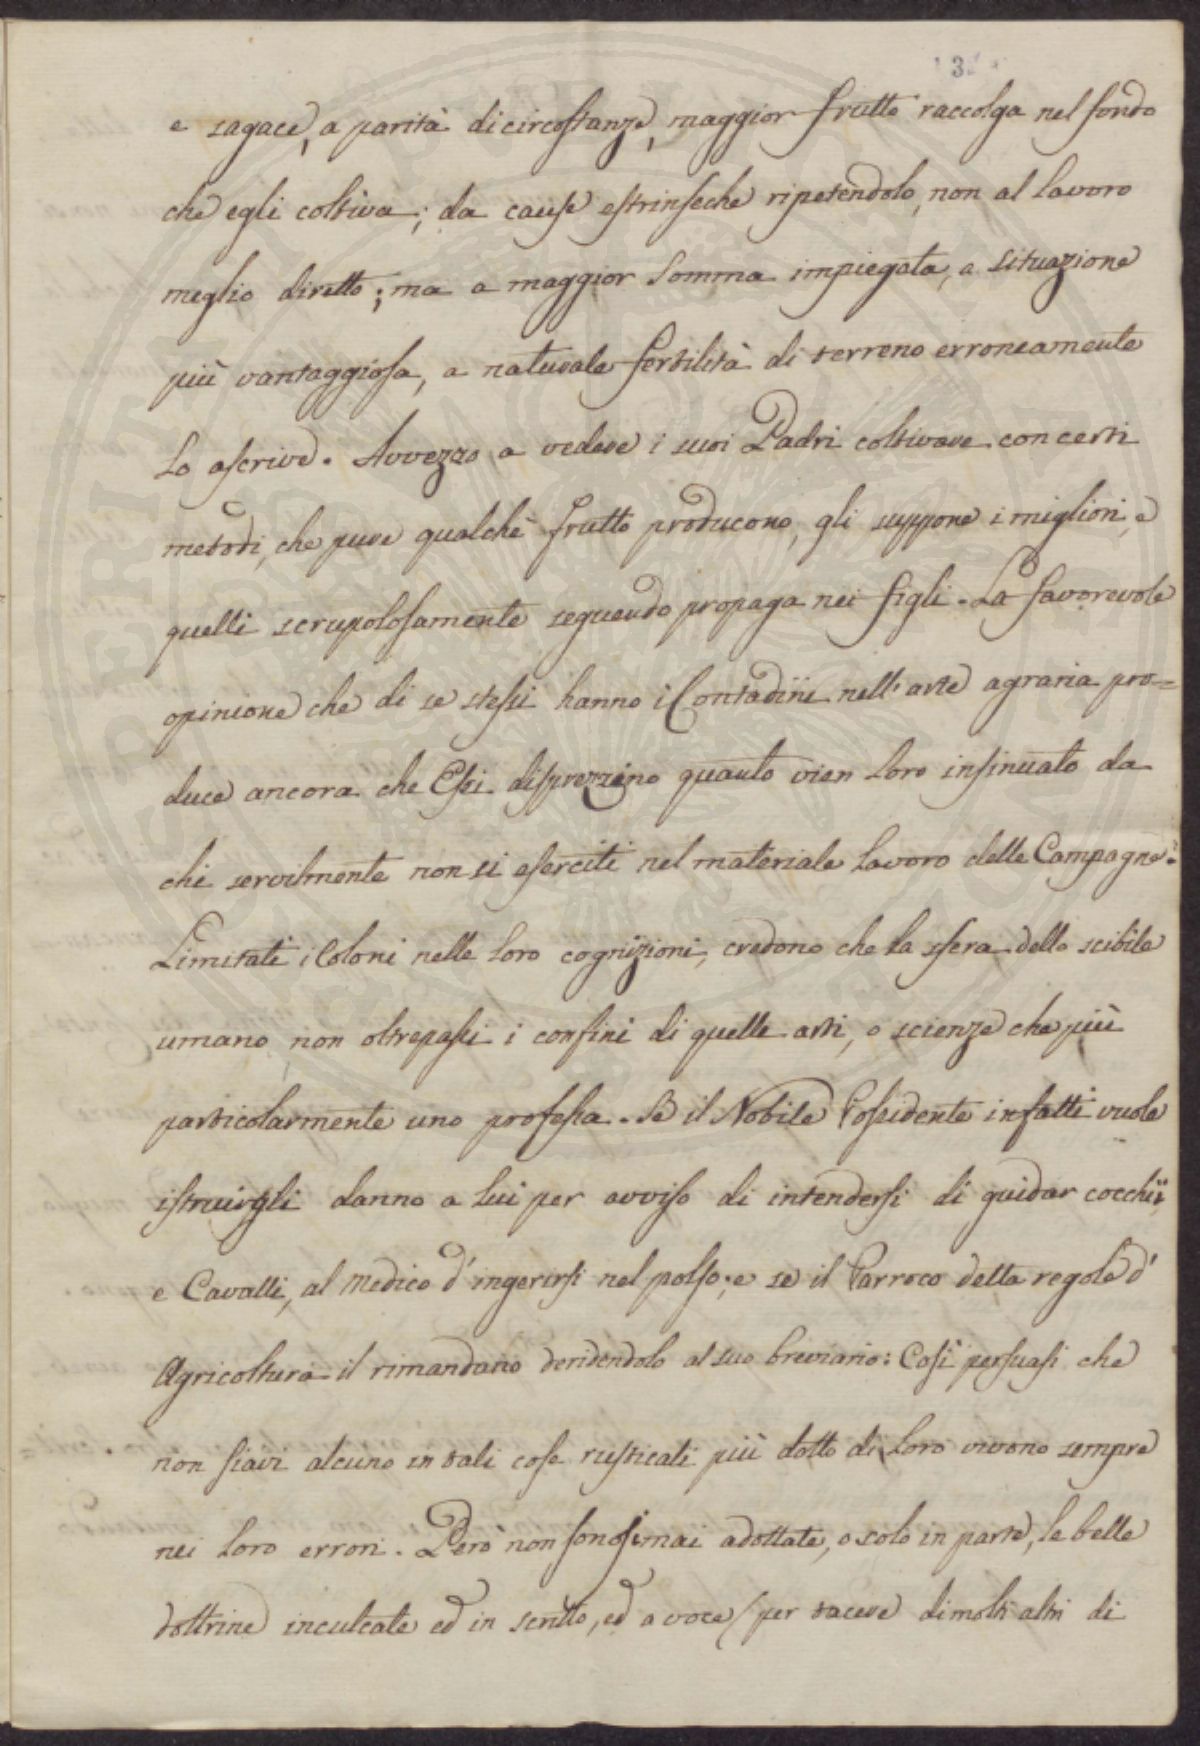 3
e sagace, a parità di circostanze, maggior frutto raccolga nel fondo
che egli coltiva; da cause estrinseche ripetendolo, non al lavoro
meglio diretto; ma a maggior somma impiegata, a situazione
più vantaggiosa, a naturale fertilità di terreno erroneamente
lo ascrive. Avvezzo a vedere i suoi Padri coltivare con certi
metodi, che pure qualche frutto producono, gli suppone i migliori, e
quelli scrupolosamente seguendo propaga nei figli. La favorevole
opinione che di se stessi hanno i Contadini nell'arte agraria pro=
duce ancora che Essi disprezzino quanto vien loro insinuato da
chi servilmente non si eserciti nel materiale lavoro delle Campagne.
Limitati i Coloni nelle loro cognizioni, credono che la sfera dello scibile
umano non oltrepassi i confini di quelle arti, o scienze che più
particolarmente uno professa. Se il Nobile Possidente infatti vuole
istruirgli danno a lui per avviso di intendersi di guidar cocchii
e Cavalli, al Medico d'ingerirsi nel polso; e se il Parroco detta regole d'
Agricoltura il rimandano deridendolo al suo breviario: Così persuasi che
non siavi alcuno in tali cose rusticali più dotto di loro vivono sempre
nei loro errori. Però non sonosi mai adottate, o solo in parte, le belle
dottrine inculcate ed in scritto, ed a voce (per tacere di molti altri di